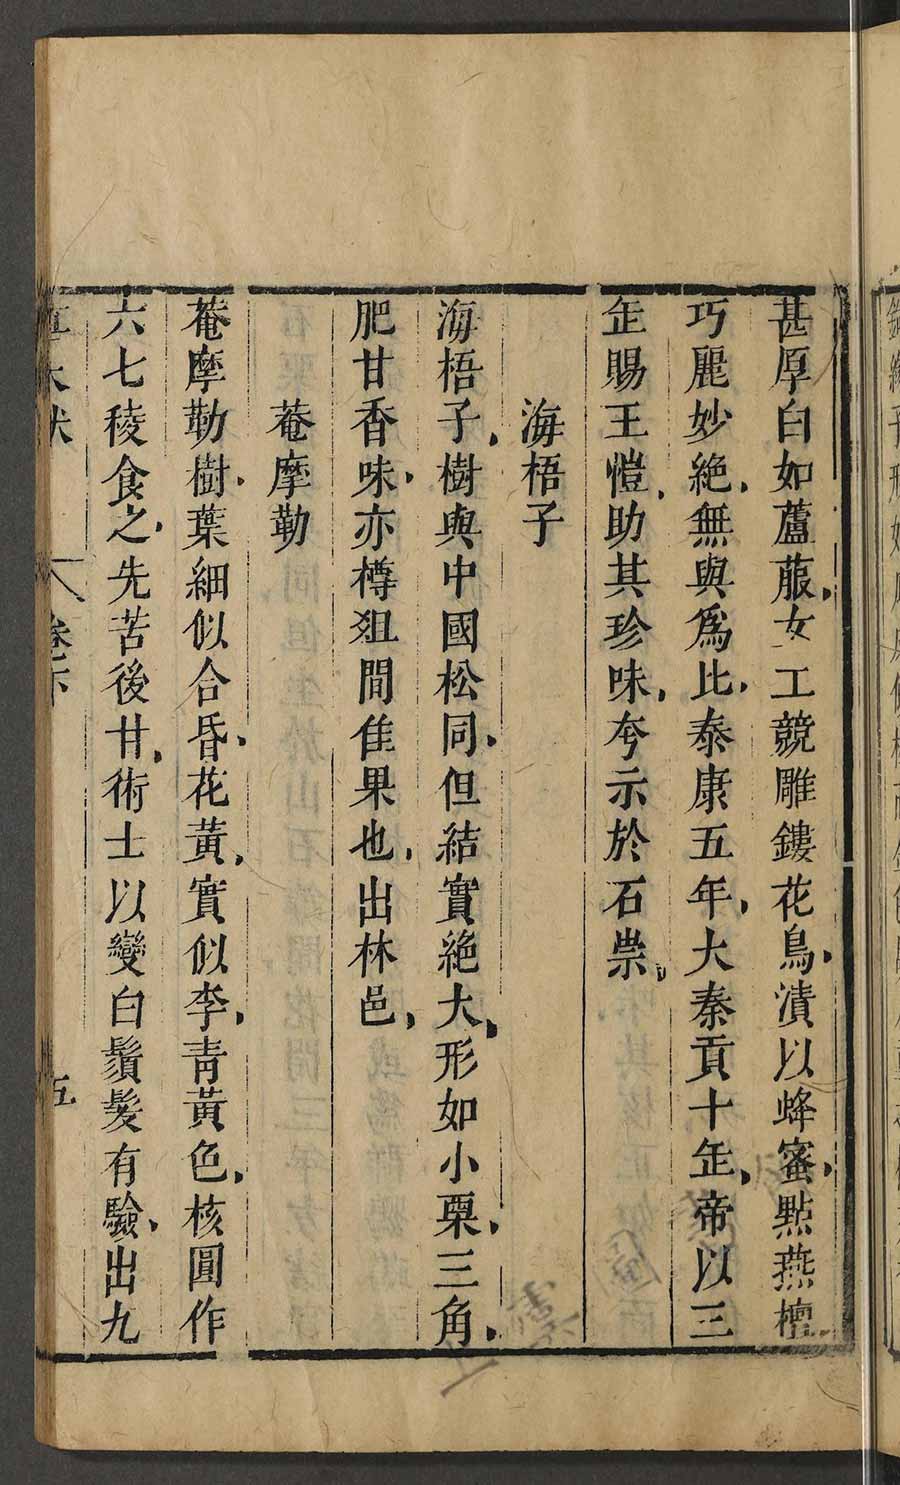 甚厚白如蘆菔女工競雕鏤花鳥漬以蜂蜜點燕檀
巧麗妙絶無與爲比泰康五年大秦貢十缶帝以三
缶賜王愷助其珍味夸示於石崇
海梧子
海梧子樹與中國松同但結實絶大形如小栗三角
肥甘香味亦樽俎間佳果也出林邑
菴摩勒
菴摩勒樹葉細似合昏花黃實似李青黃色核圓作
六七稜食之先苦後甘術士以變白鬚髮有驗出九
卷下
五